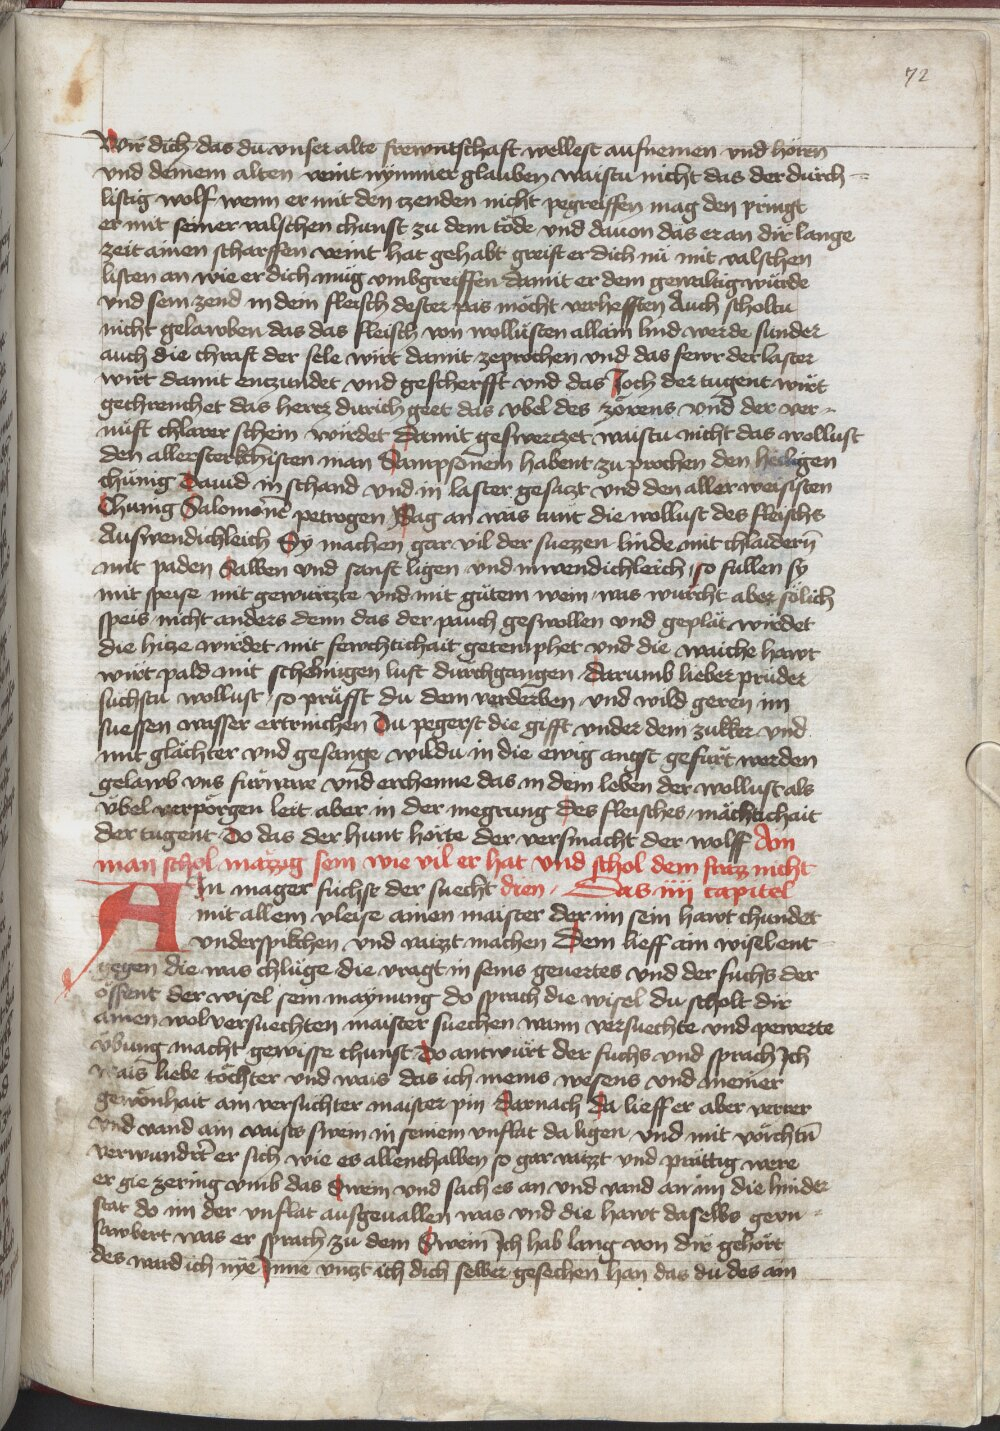 72
Wir dich das du vnser alte frewntschaft wellest aufnemen vnd hören
vnd deinem alten veint nymmer glauben waistu nicht das der durch=
listig wolf wenn er mit den tzenden nicht pegreiffen mag den pringt
er mit seiner valschen chunst zu dem töde vnd dauon das er an dir lange
zeit ainen scharffen veint hat gehabt greift er dich nü mit valschen
listen an wie er dich müg vmbgreiffen damit er dem gewaltig würde
vnd sein zend in dem fleisch dester pas möcht verhefften Auch scholtu
nicht gelawben das das fleisch von wollüsten allain lind werde sunder
auch die chraft der sele wirt damit zeprochen vnd das fewr der laster
wirt damit enczundet vnd gescherfft vnd das Joch der tugent wirt
gechrenchet das hercz durich geet das vbel des zorens vnd der ver=
nuft chlarer schein wirdet damit geswerczet waistu nicht das wollust
den allersterkchisten man Sampsonem habent zu prochen den heiligen
chünig Dauid in schand vnd in laster gesaczt vnd den aller weisisten
Chünig Salomonē petrogen Sag an was tunt die wollust des fleischs
Auswendichleich Sy machen gar vil der suezzen linde mit chlaidern̄
mit paden Salben vnd sanft ligen vnd inwendichleich so fullen sy
mit speise mit gewurczte vnd mit gütem wein was würcht aber sölich
speis nicht anders denn das der pauch geswollen vnd geplät wirdet
die hicze wirdet mit fewchtichait getemphet vnd die waiche hawt
wirt pald mit schelmigen lust durchgangen Darumb lieber prüder
suchstu wollust so prüfst du dein verderben vnd wild geren im
suessen wasser ertrinchen Du pegerst die gifft vnder dem zukker vnd
mit glächter vnd gesange wildu in die ewig angst gefürt werden
gelawb vns fürware vnd erchenne das in dem leben der wollust als
vbel verporgen leit aber in der megrung des fleisches mächtichait
der tugent Do das der hunt horte der versmacht der wolff Am
man schol mäzzig sein wie vil er hat vnd schol dem fraz nicht
Ain mager fuchs der suecht dien Das iiii capitel
mit allem vleise ainen maister der im sein hawt chundet
vnderspikchen vnd vaizt machen Dem lieff ain wisel ent=
gegen die was chlüge die vragt in seins geuertes vnd der fuchs der
öffent der wisel sein maynung do sprach die wisel du scholt dir
ainen wol versuechten maister suechen wann versuechte vnd pewerte
vbung macht gewisse chunst Do antwurt der fuchs vnd sprach Ich
wais liebe töchter vnd wais das ich meins wesens vnd meiner
gewonhait ain versuchter maister pin Darnach Da lieff er aber verrer
vnd vand ain vaists swein in seinem vnflat da ligen vnd mit vörichtū
verwundrt er sich wie es allenthalben so gar vaizt vnd prattig were
er gie zering vmb das Swein vnd sach es an vnd vand an im die hinder
stat do im der vnflat ausgeuallen was vnd die hawt daselbs gevn=
sawbert was er sprach zu dem Swein Ich hab lang von dir gehört
des ward ich nye Jnne vnczt ich dich selber gesechen han das du des ain